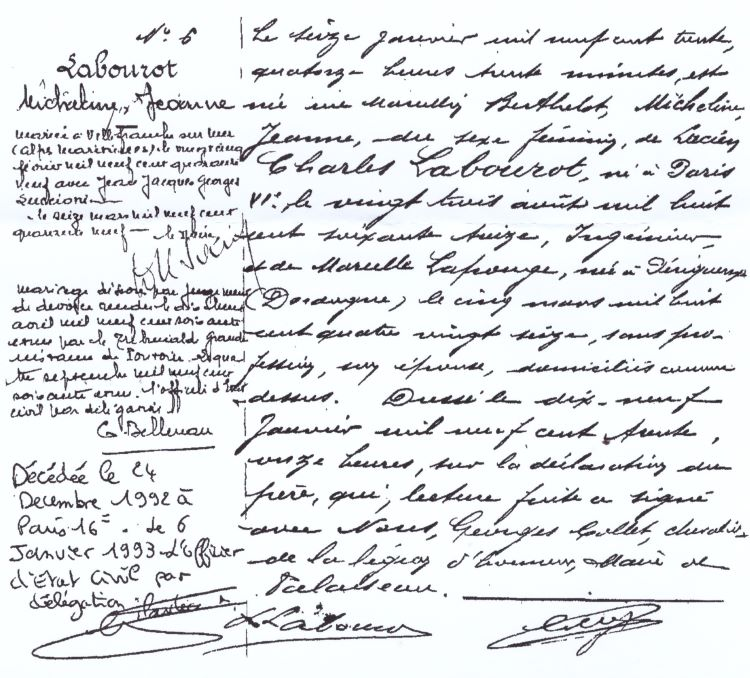 N° 6
Labourot
Micheline, Jeanne
mariée à Villefranche sur mer
(Alpes Maritimes), le vingt cinq
février mil neuf cent quarante
neuf avec Jean Jacques Georges
Lucciani
le seize mars mil neuf cent
quarante neuf — le Maire,
mariage dissous par jugement
de divorce rendu le dix huit
avril mil neuf cent soixante
par le Tribunal de grande
instance de Pontoise.
septembre mil neuf cent
soixante l'officier d'état
civil par délégation
G Bellenau
Décédée le 24
Decembre 1992 à
Paris 16è. Le 6
Janvier 1993 L'Officier
d'Etat Civil par
délégation
Le seize janvier mil neuf cent trente,
quatorze heures trente minutes, est
née rue Marcellin Berthelot, Micheline,
Jeanne, du sexe féminin, de Lucien
Charles Labourot, né à Paris
VIe, le vingt trois août mil huit
cent soixante seize, Ingénieur,
et de Marcelle Lapouge, née à Périgueux
(Dordogne) le cinq mars mil huit
cent quatre vingt seize, sans pro-
fession, son épouse, domiciliés comme
dessus. Dressé le dix-neuf
Janvier mil neuf cent trente,
onze heures, sur la déclaration du
père, qui, lecture faite a signé
avec Nous, Georges Collet, chevalier
de la légion d'honneur, Maire de
Palaiseau.
L Labourot